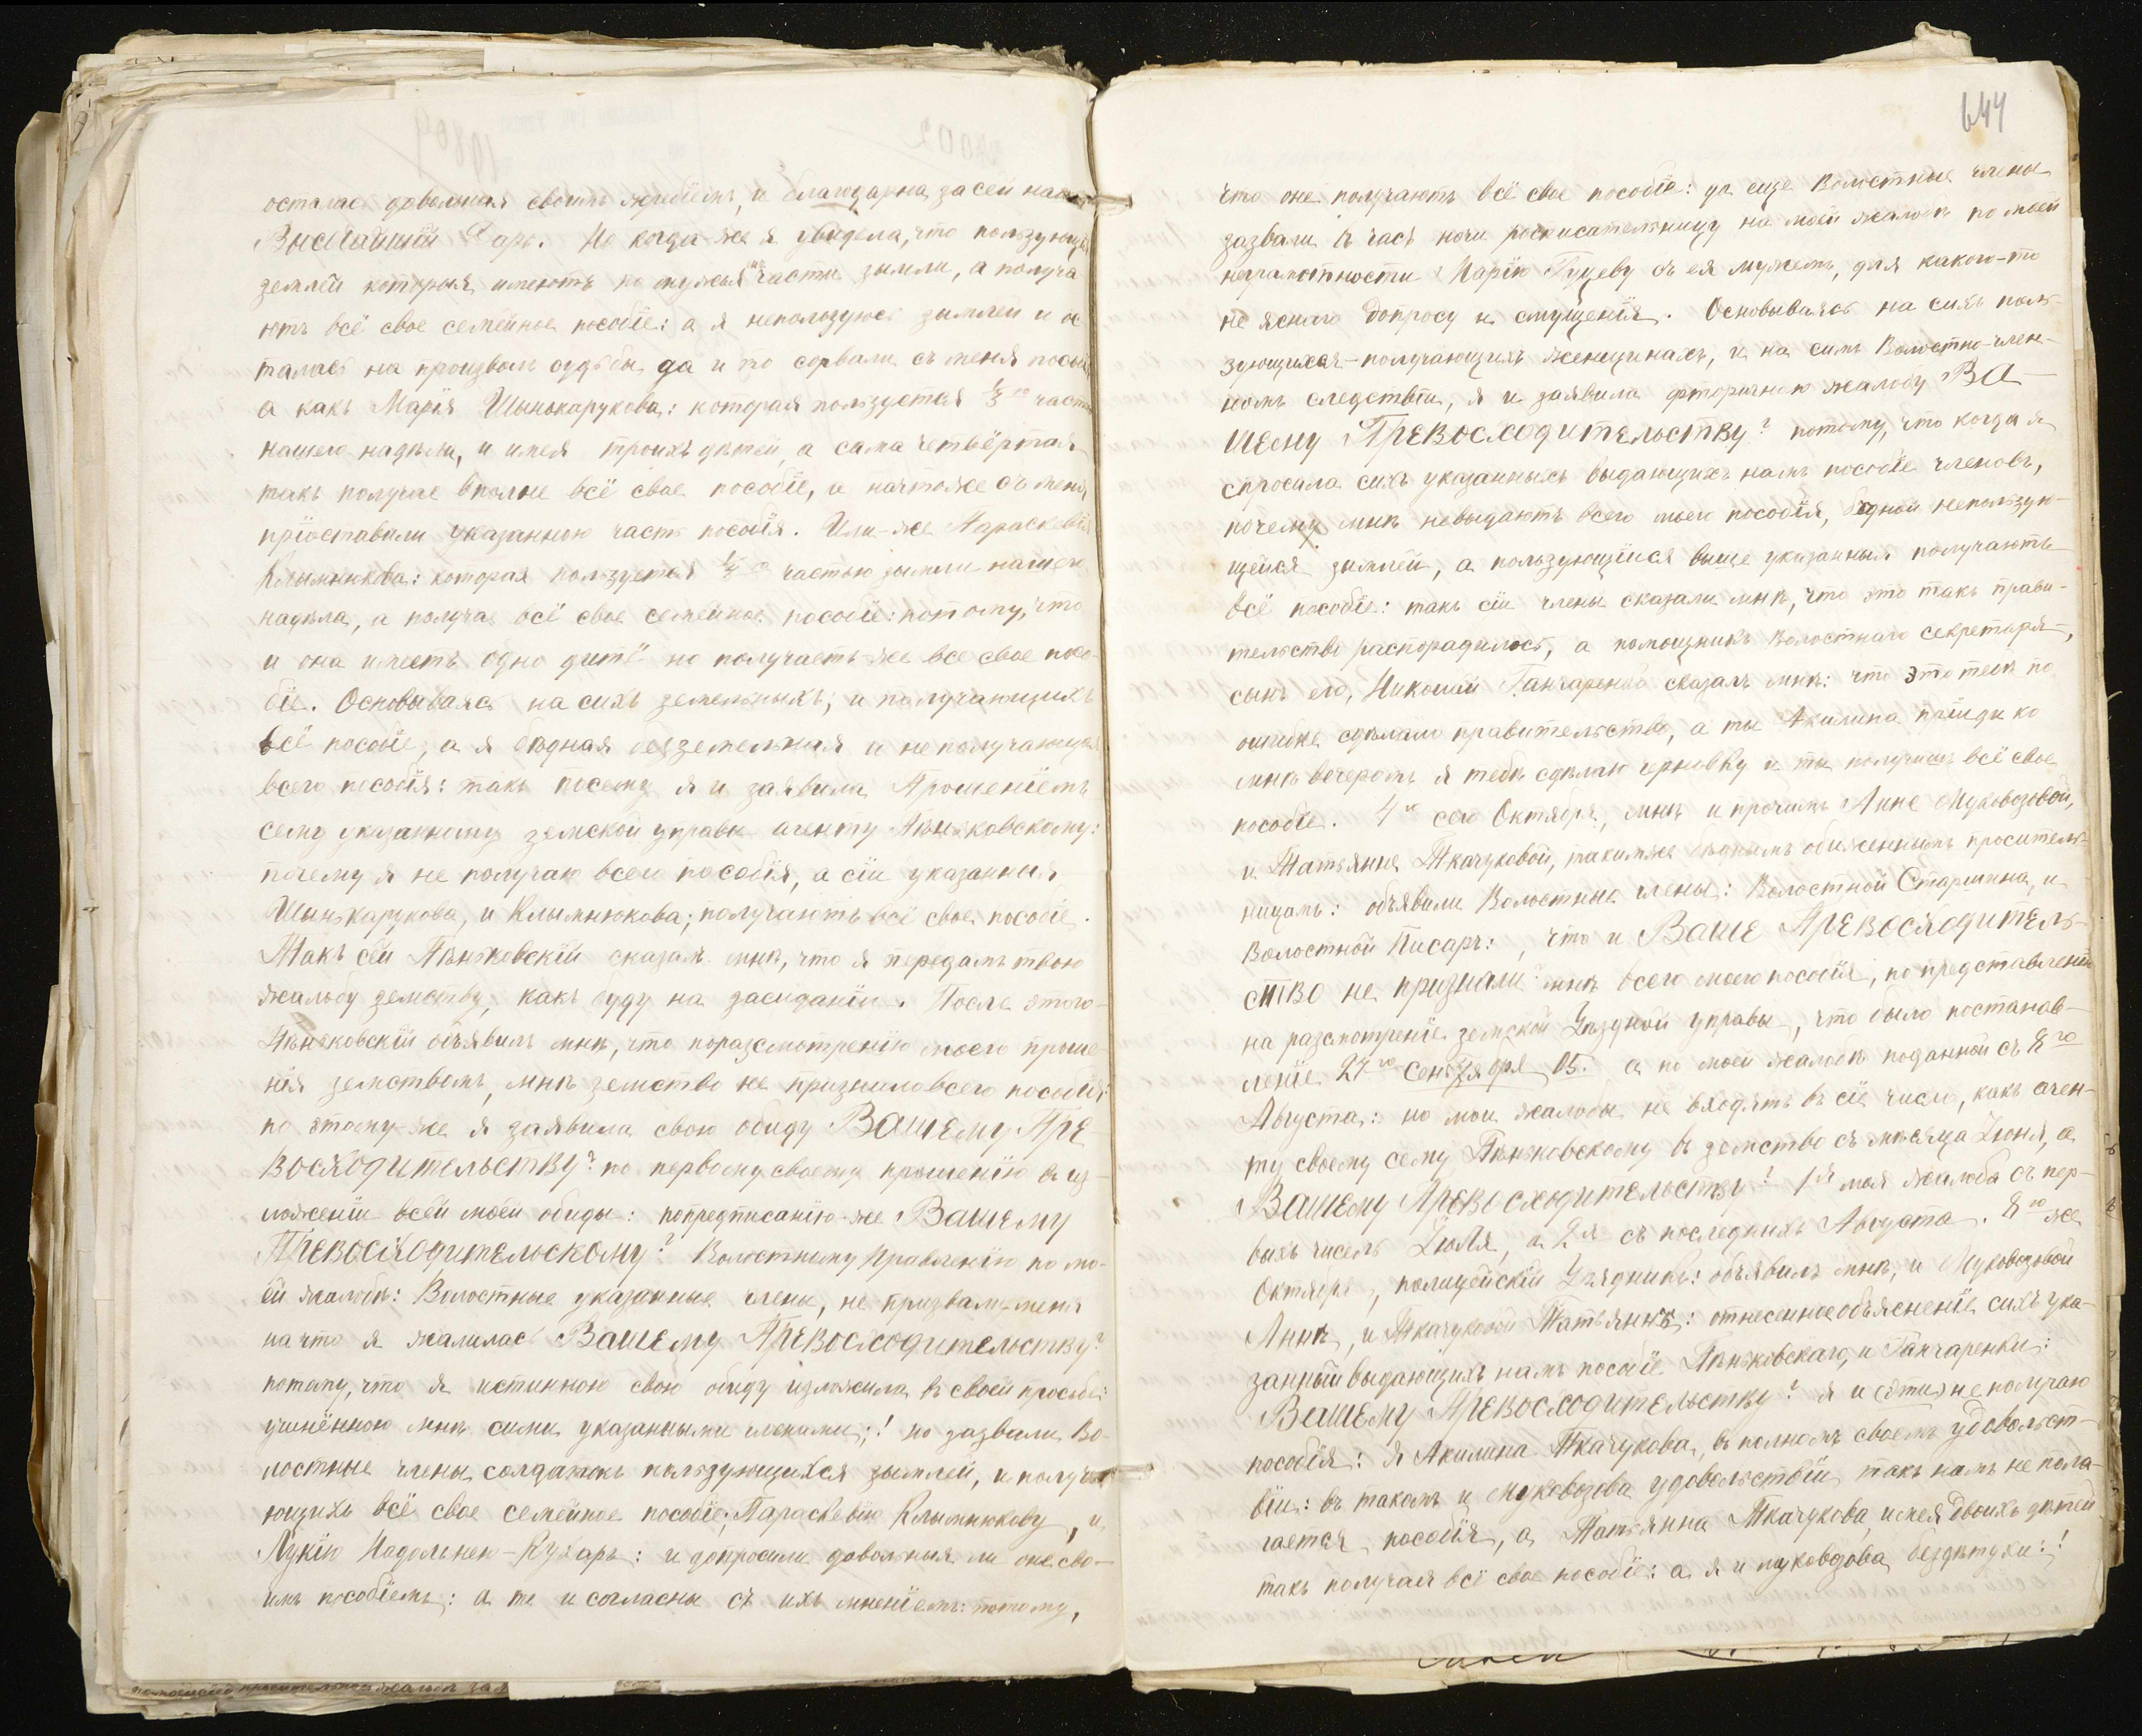 осталась довольная своимъ жребіемъ, и благодарна за сей нашъ
Высочайшій Даръ. Но когда-же я увидела, что пользующіяся
землёй которыя имеютъ по мужьямъ части зымли, а получа
ютъ всё свое семейное пособіе: а я непользуюсь зымлей и ос
талась на произволъ судьбы да и то сорвали съ меня пособіе
а какъ Марія Шынькарукова: которая пользуется 1/3 ю части
нашего надѣлы, и имея троихъ дѣтей, а сама четвёртая
такъ получае вполне всё свое пособіе, а начтоже съ меня
пріоставили указанною часть пособія. Или-же Параскевія
Клымнюкова: которая пользуется 1/3 ю частью зымли нашего
надѣла, а получае всё свое семейное пособіе: потому, что
и она имеетъ одно дитё но получаетъ-же все свое посо-
біе. Основываясь на сихъ земельныхъ; и получающихъ
всё пособіе, а я бѣдная безземельная и не получающая
всего пособія: такъ посему я и заявила Прошеніемъ
сему указанному земской управы агенту Пѣньковскому:
почему я не получаю всего пособія, а сіи указанныя
Шынькарукова, и Клымнюкова; получаютъ всё свое пособіе.
Такъ сей Пѣньковскій сказалъ мнѣ, что я передамъ твою
жальбу земству, какъ буду на засиданіи. После этого-
Пѣньковскій объявилъ мнѣ, что поразсмотренію моего проше
нія земствомъ, мнѣ земство не признило всего пособія:
по этому-же я заявила свою обиду Вашему Пре-
восходительству? по первому своему прошенію въ из-
ложеніи всей моей обиды: попредписанію-же Вашему
Превосходительскому? Волостному Правленію по мо-
ей жалобѣ: Волостные указанные члены, не призвали-меня
на что я жалилась Вашему Превосходительству?
потому, что я истинною свою обиду изложила въ своей прозьбе:
учинённою мнѣ сими указанными членами;! но зазвали Во-
лостные члены солдатокъ пользующихся зымлей, и получа-
ющихъ всё свое семейное пособіе; Параскевію Клымнюкову, и
Лукію Надольнею-Кухаръ: и допросили довольныя ли оне сво-
имъ пособіемъ: а те и согласны съ ихъ мненіемъ: потому,
644
что оне получаютъ всё свое пособіе: да еще Волостные члены
зазвали въ часъ ночи росписательницу на моей жалобѣ по моей
неграмотности Марію Гуцеву съ ея мужемъ, для какого-то
не яснаго допросу и смущенія. Основываясь на сихъ поль-
зующихся-получающихъ женщинахъ, и на симъ Волостно-член-
номъ следствіи, я и заявила фторичною жалобу Ва-
шему Превосходительству? потому, что когда я
спросила сихъ указанныхъ выдающихъ намъ пособіе членовъ,
почему мнѣ невыдаютъ всего моего пособія, бѣдной непользую-
щейся зымлей, а пользующіися выще указанныя получаютъ
всё пособіе: такъ сіи члены сказали мнѣ, что это такъ прави-
тельство распорадилось, а помощникъ волостнаго секретаря,
сынъ его, Николай Ганчаренко сказалъ мнѣ: что это такъ по
ошибке сдѣлало правительство, а ты Акилина пріиди ко
мнѣ вечеромъ я тебѣ сдѣлаю черновку и ты получишь всё свое
пособіе. 4го сего Октября, мнѣ и прочимъ Анне Муковозовой,
и Татьянне Ткачуковой, такимже бѣднымъ обиженнымъ проситель-
ницамъ: объявили Волостные члены: Волостной Старшина, и
Волостной Писаръ:, что и Ваше Превосходитель-
ство не признали? мнѣ всего моего пособія, по представленію
на разсмотреніе земской Уѣздной управы, что было постанов-
леніе 27го Сентября 15. а по моей жалобѣ поданной съ 8го
Августа: но мои жалобы не входятъ въ сіе число, какъ аген-
ту своему сему Пѣньковскому въ земство съ мѣсяца Іюня, а
Вашему Превосходительству? 1я моя жалоба съ пер-
выхъ чиселъ Іюля, а 2я съ последнихъ Августа. 8го же
Октября, полицейскій Урядникъ: объявилъ мнѣ, и Муковозовой
Аннѣ, и Ткачуковой Татьяннѣ: отнесенное объясненіе сихъ ука-
занный выдающихъ намъ пособіе Пѣньковскаго, и Ганчаренки:
Вашему Превосходительству? я и (эти) не получаю
пособія: я Акилина Ткачукова, въ полномъ своемъ удовольст-
віи: въ такомъ и Муковозова удовольствіи такъ намъ не пола-
гается пособія, а Татьянна Ткачукова, имея двоихъ дѣтей
такъ получая всё свое пособіе: а я и муковозова бездѣтухи:!